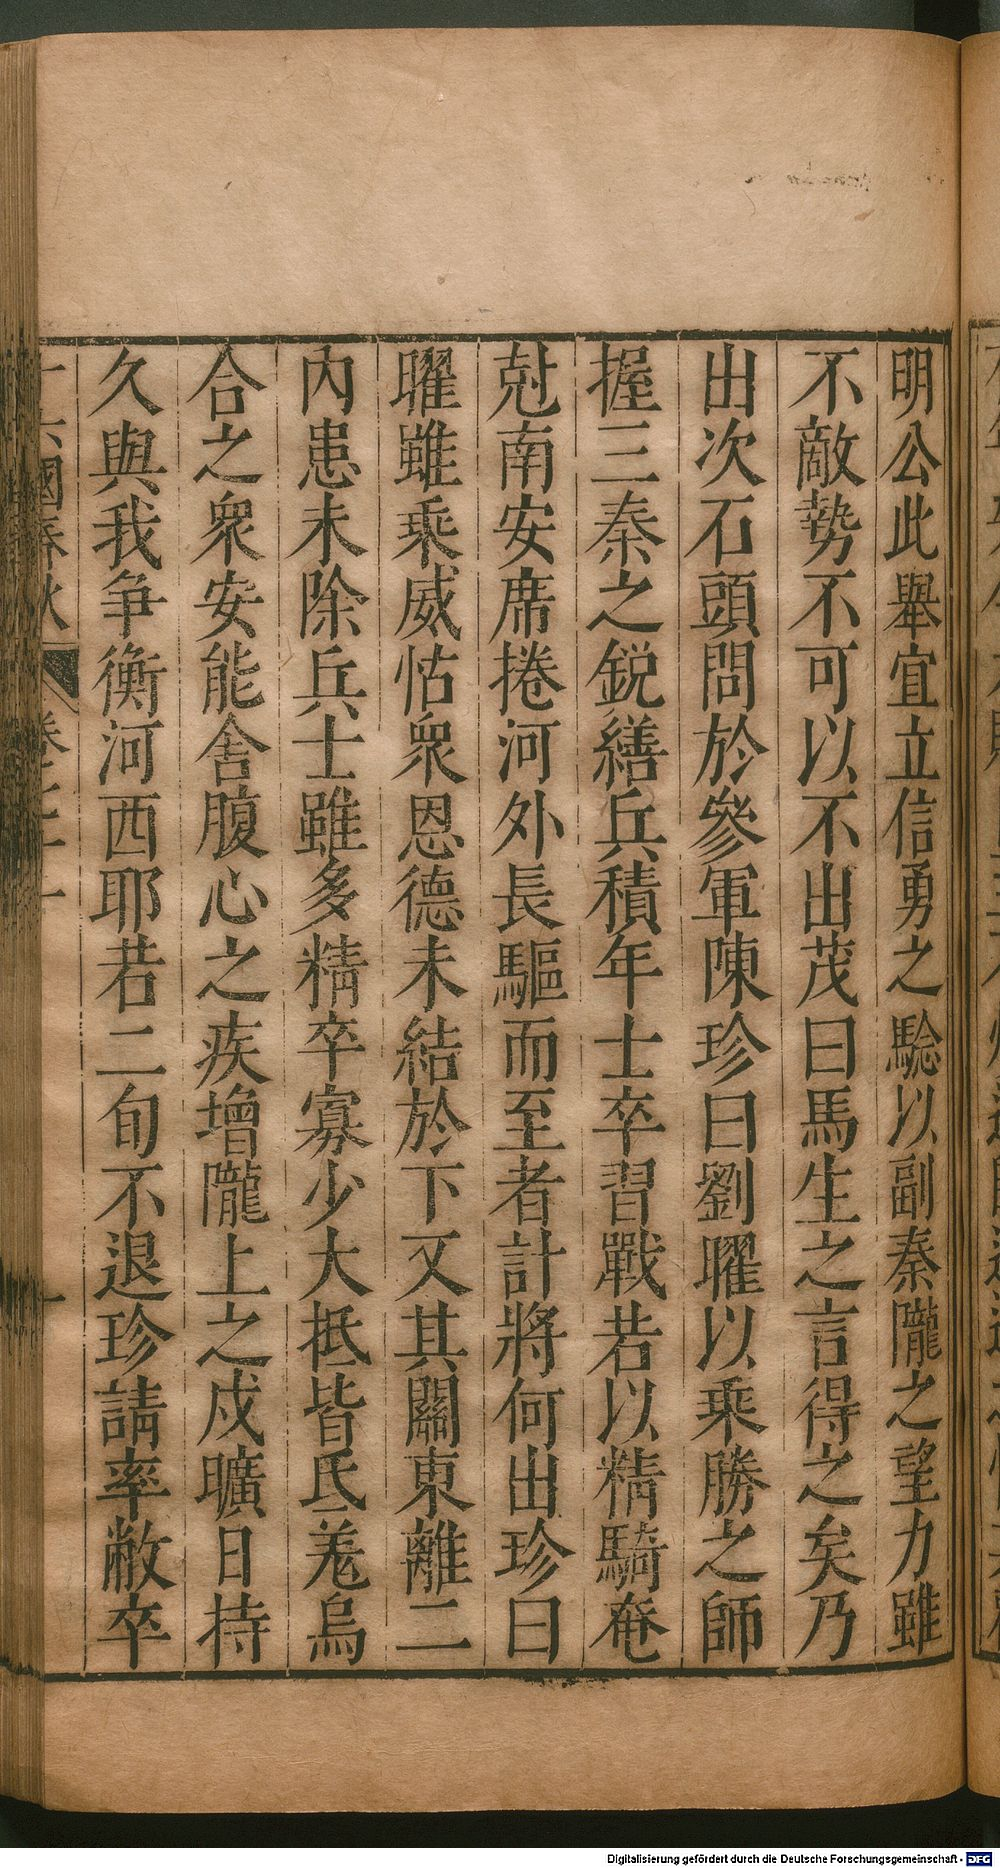 明公此舉宜立信勇之驗以副秦隴之望力雖
不敵勢不可以不出茂曰馬生之言得之矣乃
出次石頭問於參軍陳珍曰劉曜以乘勝之師
握三秦之銳繕兵積年士卒習戰若以精騎奄
尅南安席捲河外長驅而至者計將何出珍曰
曜雖乘威怙衆恩德未結於下又其關東離二
內患未除兵士雖多精卒寡少大抵皆氐羌烏
合之衆安能舍腹心之疾增隴上之戍曠日持
久與我爭衡河西耶若二旬不退珍請率敝卒
十六國春秋 卷七十一
Digitalisierung gefördert durch die Deutsche Forschungsgemeinschaft - DFG